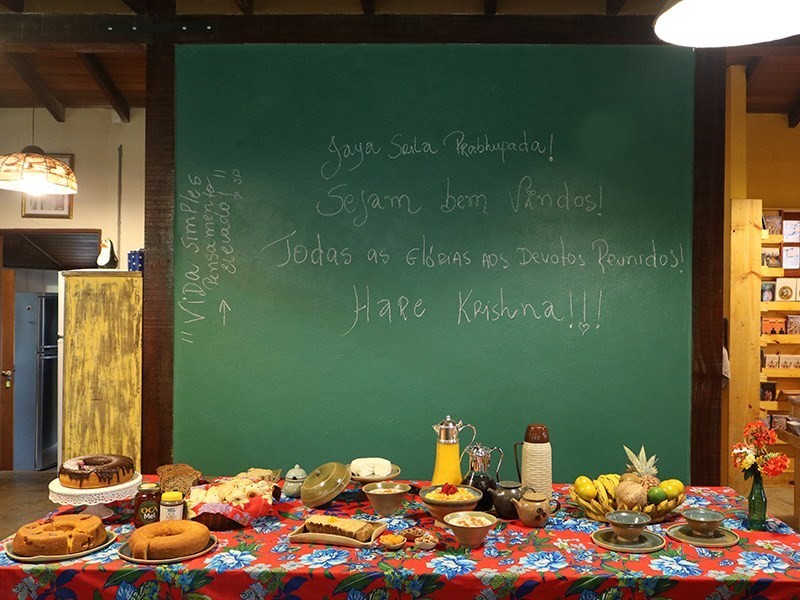 Jaya Srila Prabhupada!
Sejam bem Vindos!
Todas as Glórias aos Devotos Reunidos!
Hare Krishna!!!
"Vida Simples
Pensamento
Elevado"
OCA
Mel